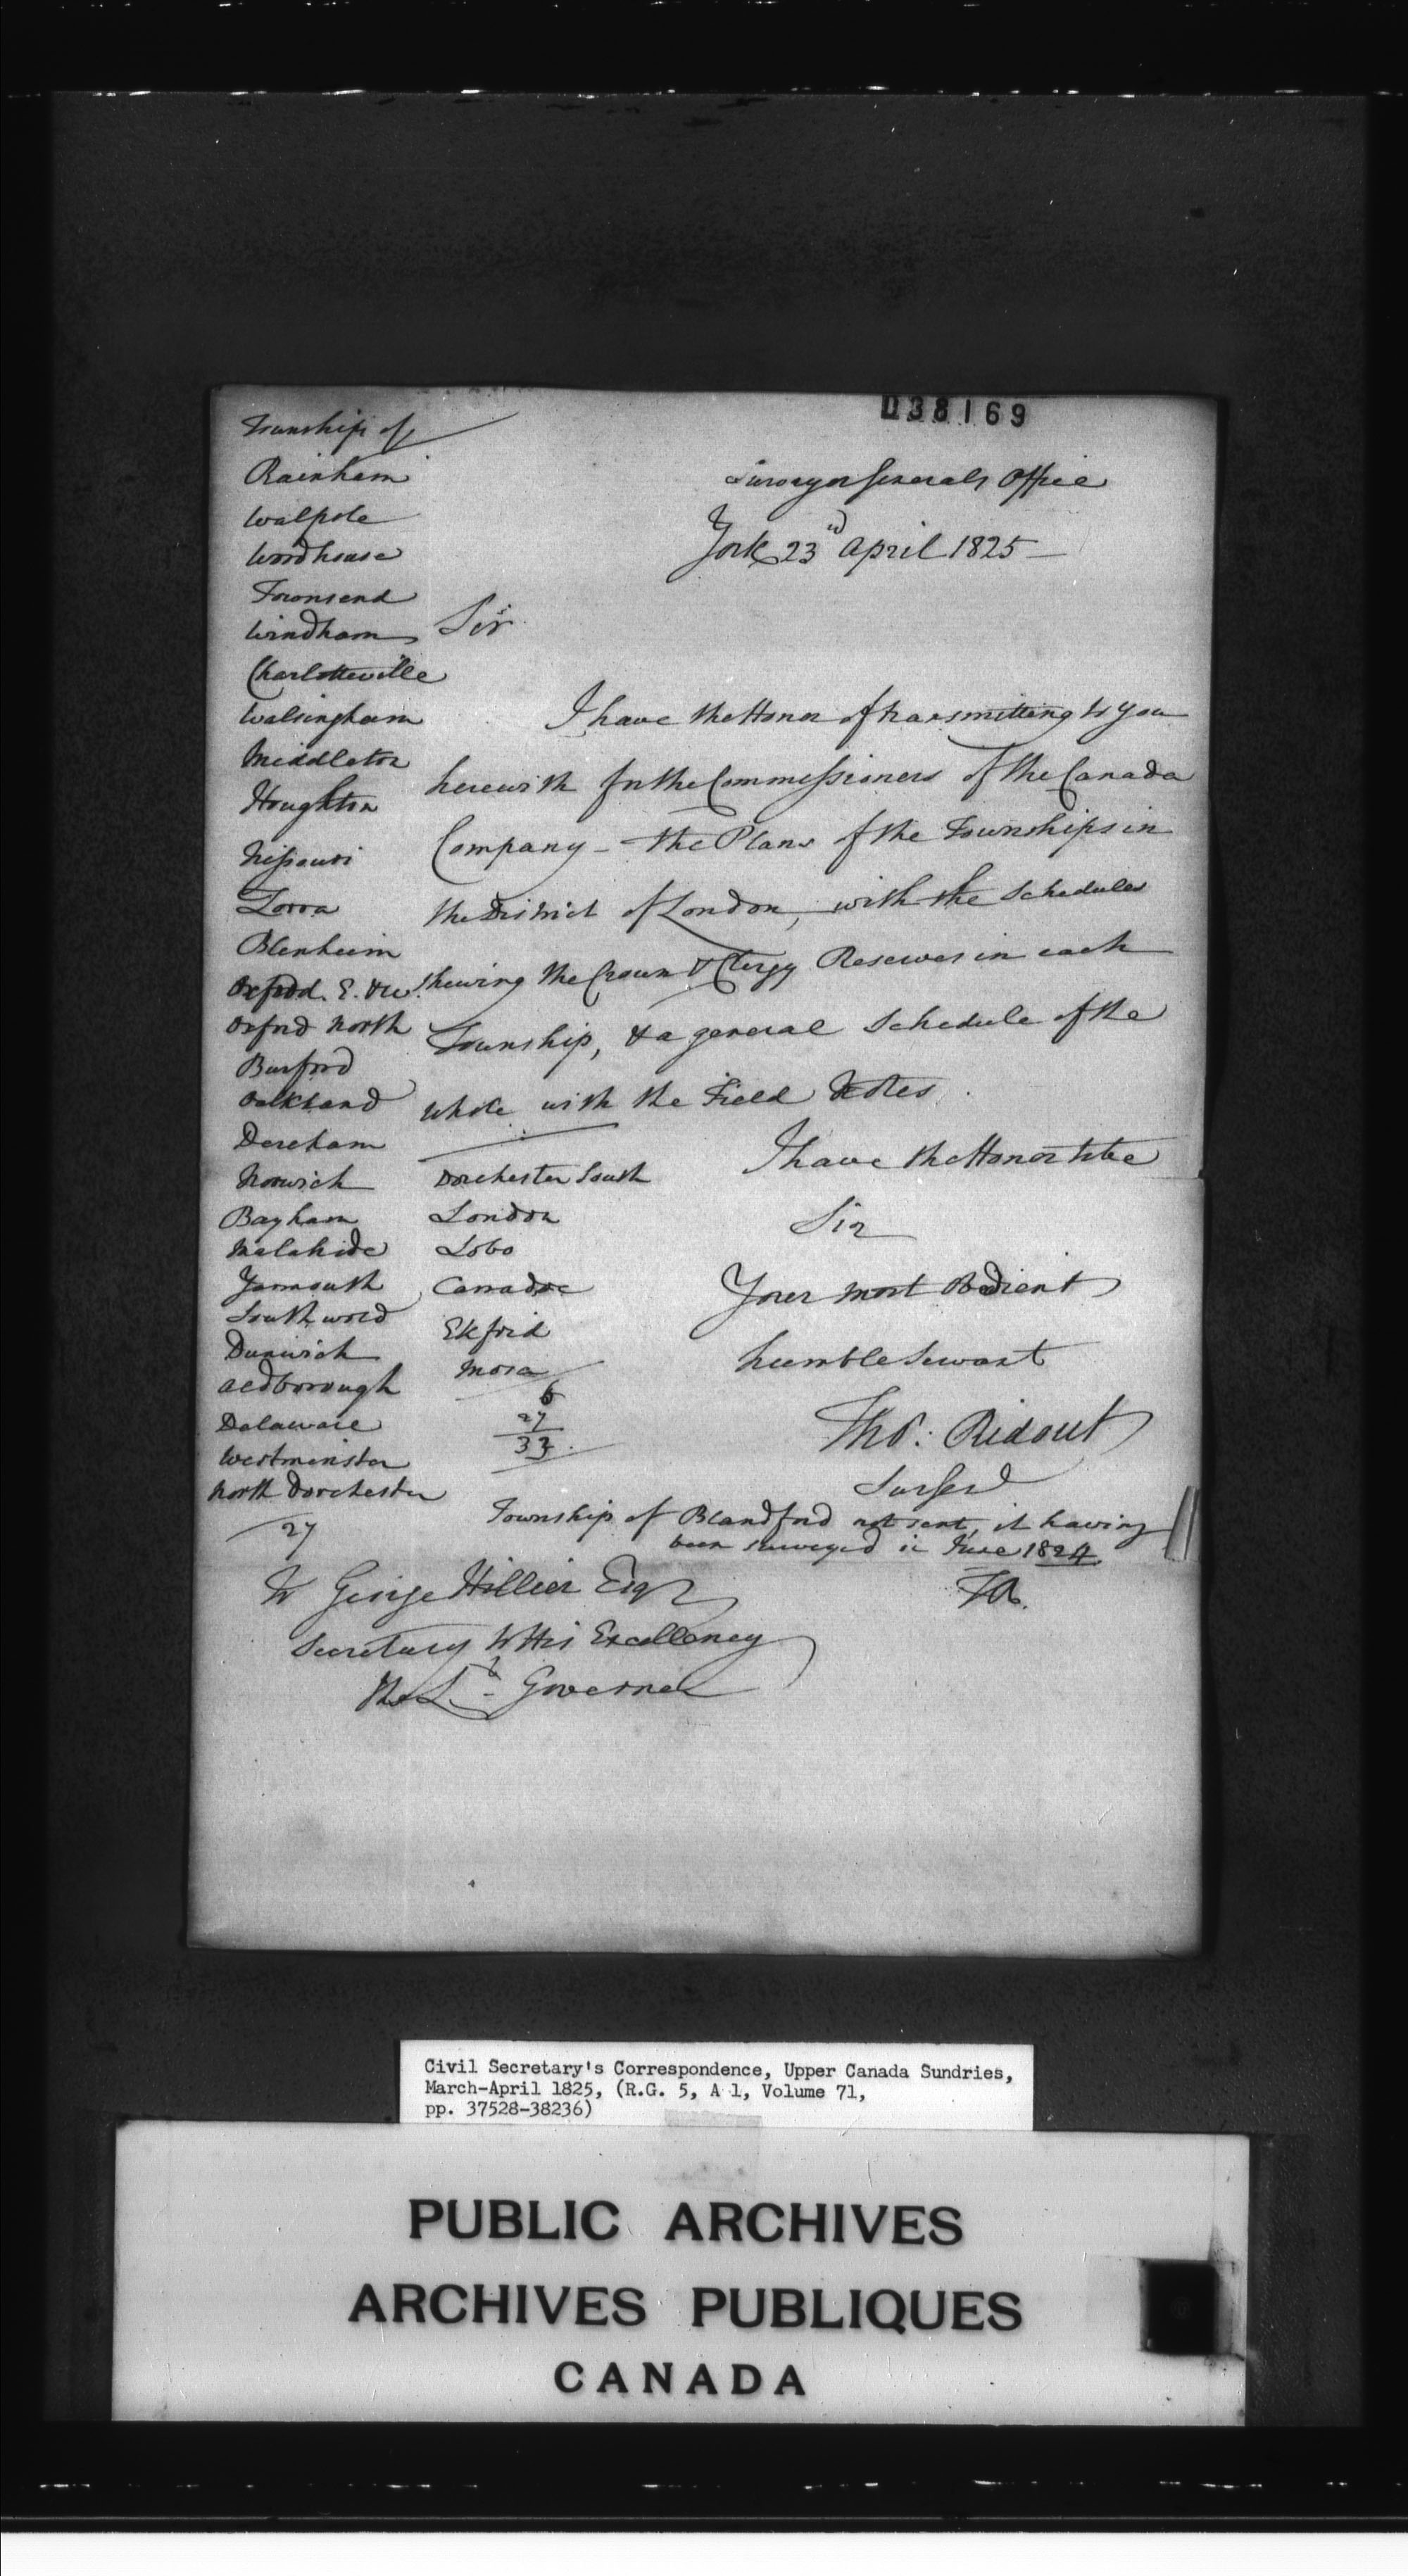 038169
Township of
Rainham
Walpole
Woodhouse
Townsend
Windham
Charlotteville
Walsingham
Middleton
Houghton
Nissouri
Zorra
Blenheim
Oxford. E. & W.
Oxford North
Burford
Oakland
Dereham
Norwich
Bayham
Malahide
Yarmouth
Southwold
Dunwich
Aldborough
Delaware
Westminster
North Dorchester
27
Surveyor Generals Office
York 23rd April 1825
Sir
I have the Honor of transmitting to you
herewith for the Commissioners of the Canada
Company - the Plans of the Townships in
the District of London, with the Schedules
shewing the Crown & Clergy Reserves in each
Township, & a general Schedule of the
whole with the Field Notes.
Dorchester South
London
Lobo
Carradoc
Ekfrid
Mosa
6
27
33
I have the Honor to be
Sir
Your most Obedient
humble Servant
Thos: Ridout
Sur Genl
Township of Blandford not sent, it having
been surveyed in June 1824
TR.
To George Hillier Esqr
Secretary to His Excellency
the Lt. Governor
Civil Secretary's Correspondence, Upper Canada Sundries,
March-April 1825, (R.G. 5, A 1, Volume 71,
pp. 37528-38236)
PUBLIC ARCHIVES
ARCHIVES PUBLIQUES
CANADA